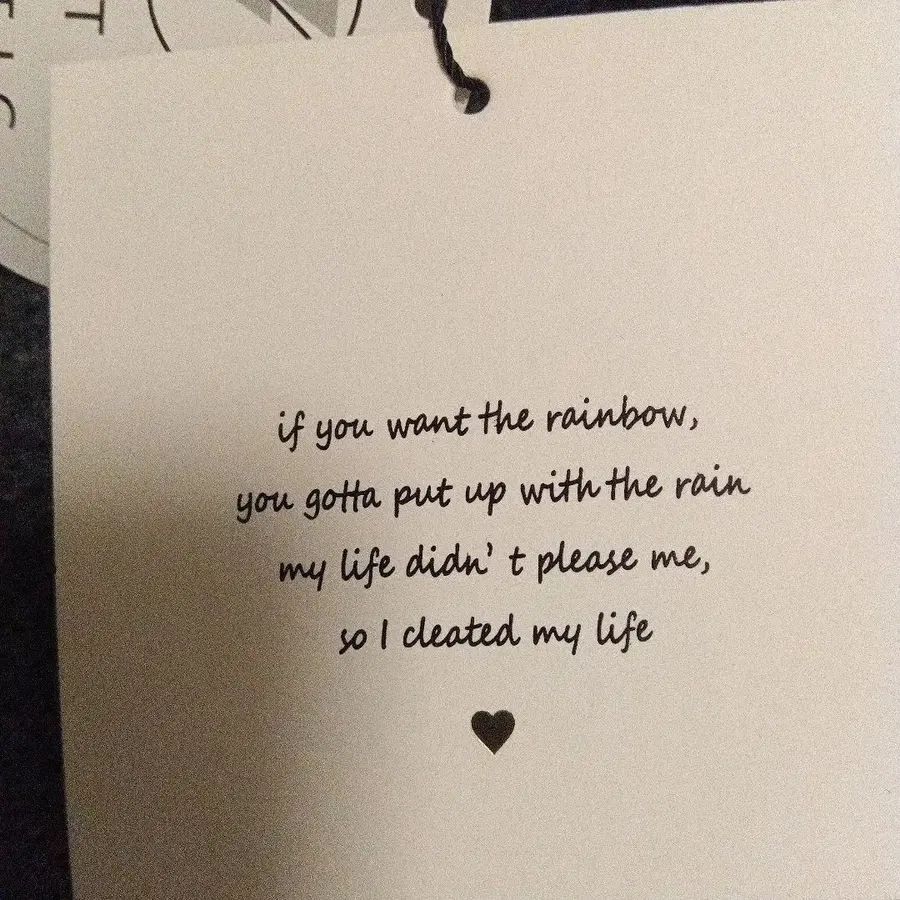 if you want the rainbow,
you gotta put up with the rain
my life didn' t please me,
so I cleated my life